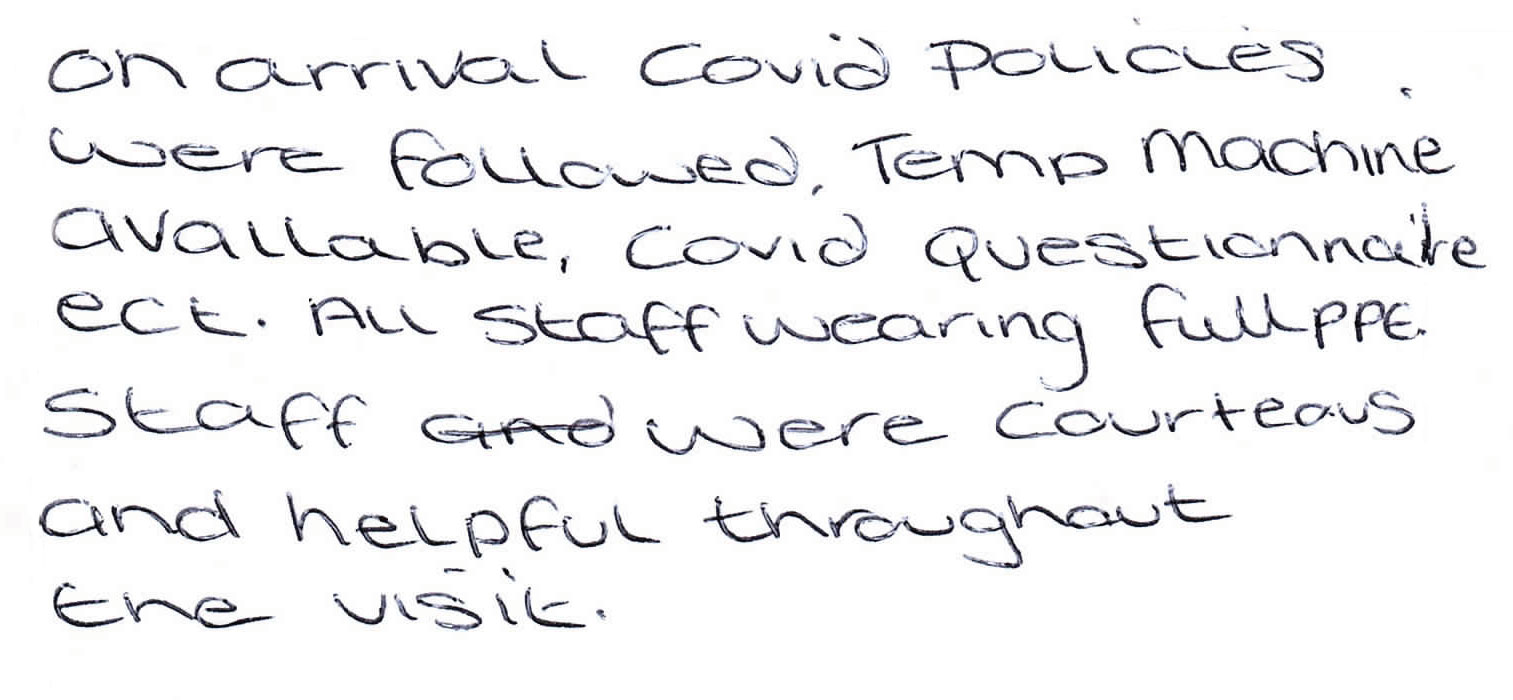 On arrival Covid Policies
were followed, Temp Machine
available, Covid Questionnaire
ect. All Staff wearing full PPE.
Staff and were courteous
and helpful throughout
the visit.